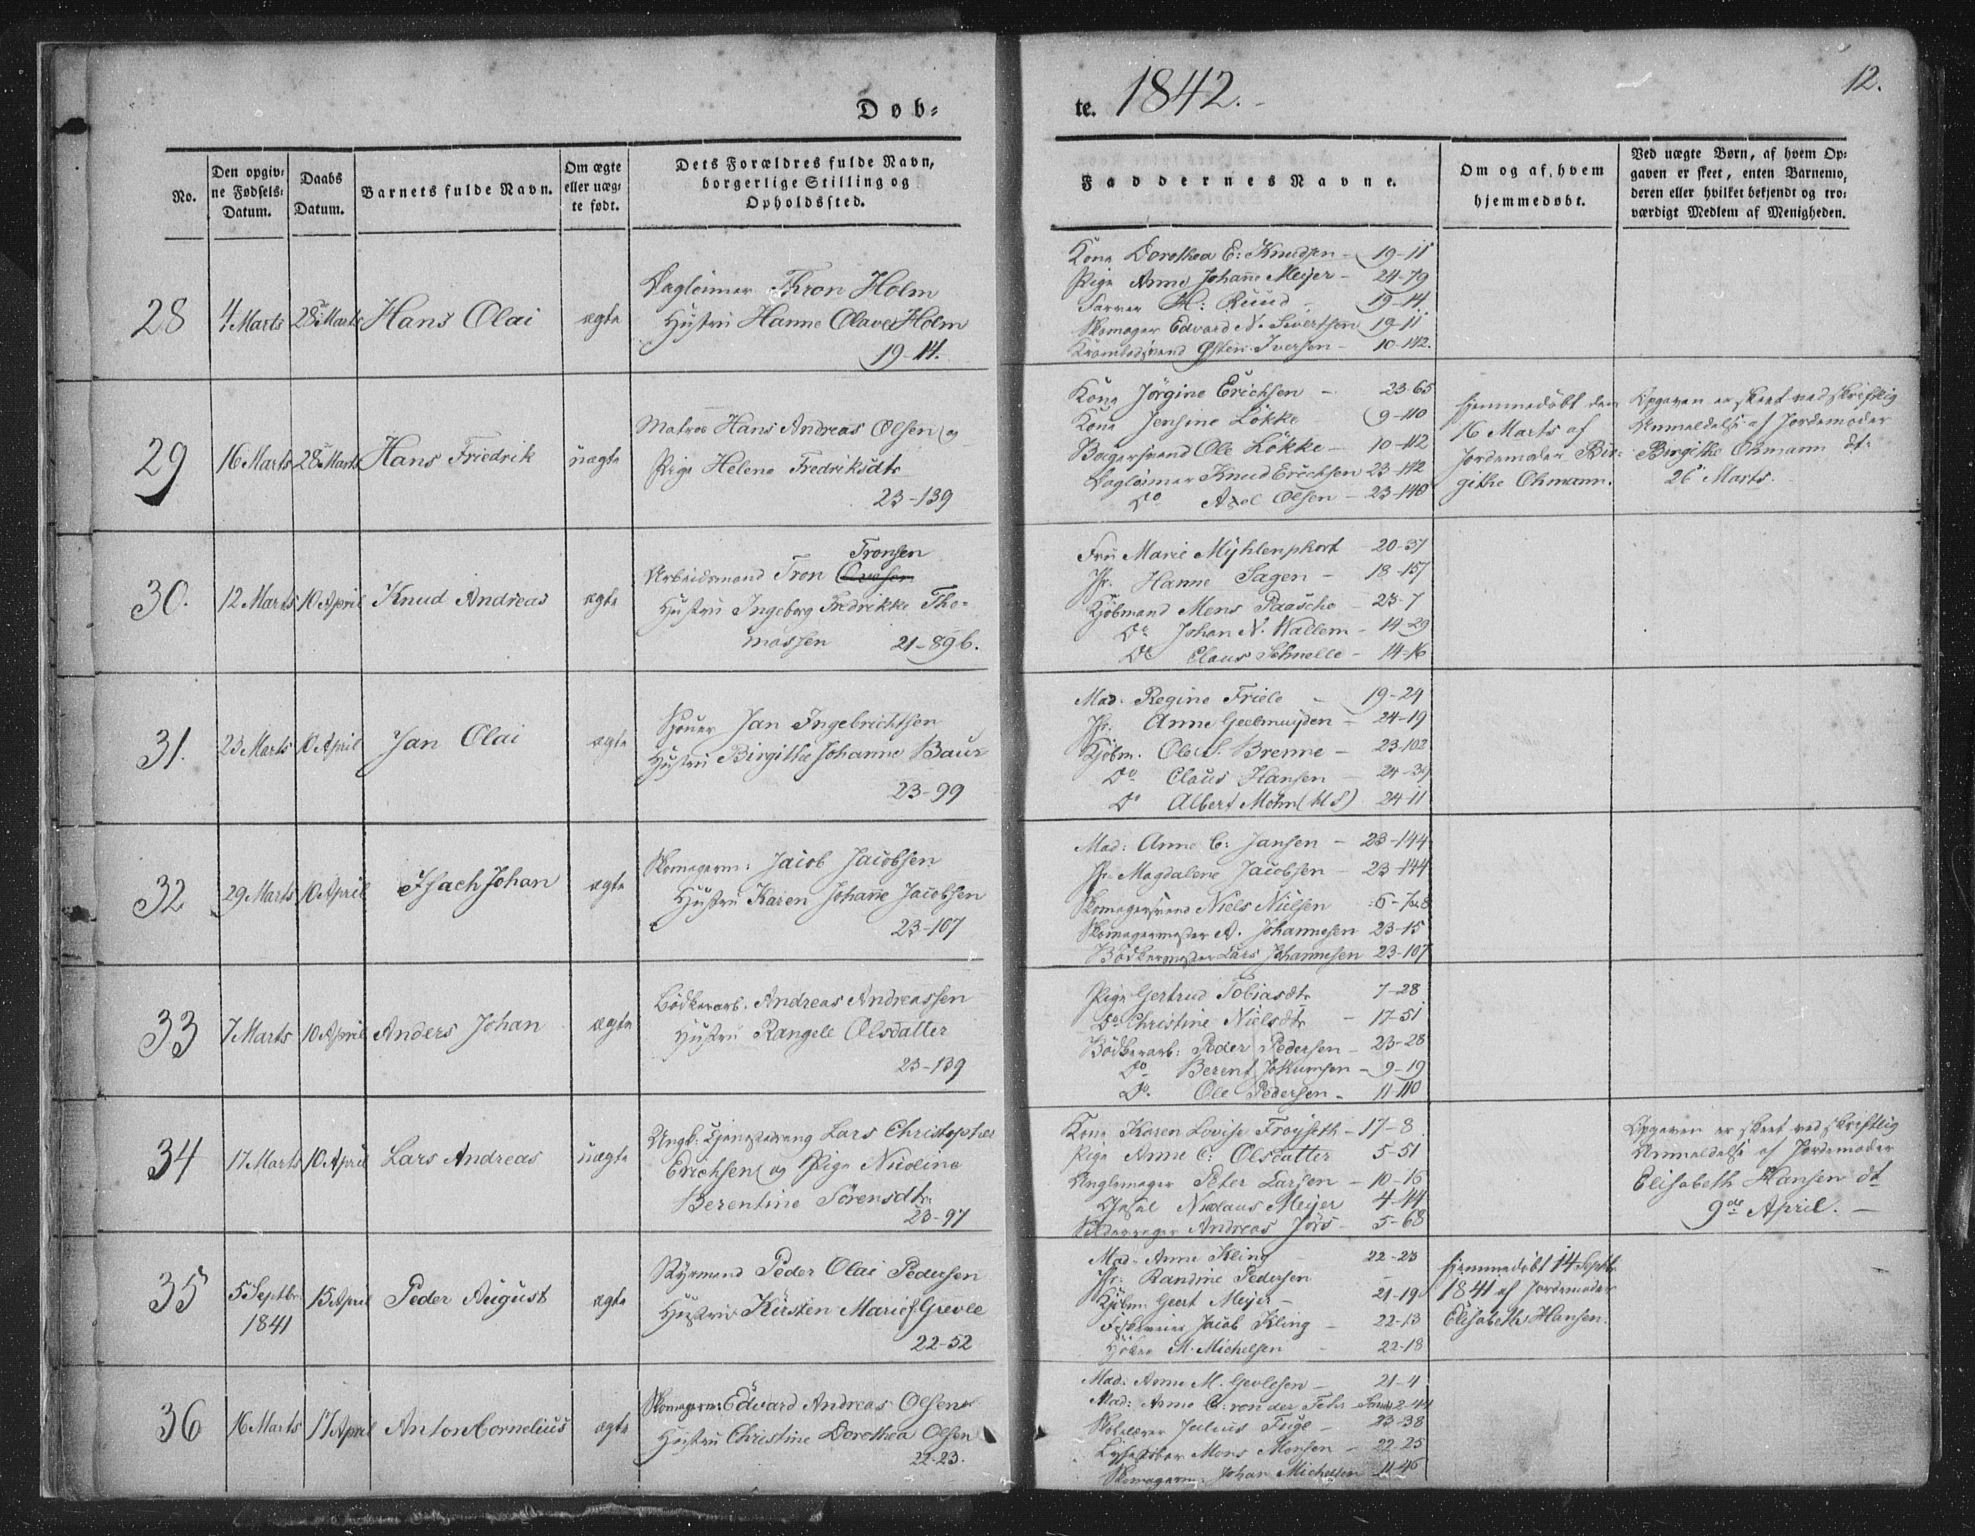 Døb-
te. 1842.
12.
No.
Den opgiv-
ne Fødsels-
Datum.
Daabs
Datum.
Barnets fulde Navn.
Om ægte
eller uæg-
te født.
Dets Forældres fulde Navn,
borgerlige Stilling og
Opholdssted.
Faddernes Navne.
Om og af hvem
hjemmedøbt.
Ved uægte Børn, af hvem Op-
gaven er skeet, enten Barnemo,
deren eller hvilket bekjendt og tro-
værdigt Medlem af Menigheden.
28
4 Marts
28 Marts
Hans Olai
ægte
Dagleinner Thron Holm
Hustru Hanne Olava Holm
19-14.
Kone Dorothea E: Knudsen - 19-11
Pige Anne Johanne Meyer - 24-79
Farver H: Ruud - 19-14
Skomager Edvard N. Sivertsen 19-11
Østen Iversen - 10-142.
29
16 Marts
28 Marts
Hans Friedrik
uægte
Matros Hans Andreas Olsen og
Pige Helene Fredriksdtr
23-139
Kone Jörgine Erichsen - 23-65
Kone Jensine Lökke 9-110
Bagersvend Ole Lökke - 10-112
Dagleinner Knud Erichsen 23-142
Do Axel Olsen - 23-140
hjemmedöbt den
16 Marts af
Jordemoder Bir-
githe Ohmann.
Opgaven er skeet ved skriftlig
Anmeldelse af Jordemoder
Birgithe Ohmann dt:
26 Marts.
30.
12 Marts
10 April
Knud Andreas
ægte
Tronsen
Arbeidsmand Tron
Hustru Ingeborg Fredrikke Tho-
massen 21-89b.
Fru Marie Mÿhlenphort - 20-37
Jfr. Hanne Sagen - 18-157
Kjöbmand Mens Paasche - 23-7
Do Johan N. Wallem - 14-29
Do Claus Schnelle - 14-16
31.
23 Marts
10 April
Jan Olai
ægte
Jan Ingebrichtsen
Hustru Birgithe Johanne Baur
23-99
Mad. Regine Friele - 19-24
Jfr. Anne Geelmuyden - 24-19
Kjöbm. Ole S. Brenne - 23-102
Do Claus Hansen - 24-39
Do Albert Mohn 24-11
32
29 Marts
10 April
Isach Johan
ægte
Skomagerm: Jacob Jacobsen
Hustru Karen Johanne Jacobsen
23-107
Mad: Anne C: Jansen - 23-144
Jfr. Magdalene Jacobsen - 23-144
Skomagersvend Niels Nielsen
Skomagermester A. Johannesen 23-15
Bödkermester Lars Johannesen 23-107
33
7 Marts
10 April
Anders Johan
ægte
Bödkerarb. Andreas Andreassen
Hustru Rangele Olsdatter
23-139
Pige Gertrud Tobiasdtr 7-28
Do Christine Nielsdtr - 17-51
Bödkerarb: Peder Pedersen - 23-28
Do Berent Jokumsen - 9-19
Do. Ole Pedersen - 11-110
34
17 Marts
10 April
Lars Andreas
uægte
Ungk: Tjenestedreng Lars Christopher
Erichsen og Pige Nicoline
Berentine Sörensdtr.
23-97
Kone Karen Lovise Fröyseth - 17-8
Pige Anne C: Olsdatter 5-51
Peter Larsen - 10-16
Nicolaus Meyer 4-44
Andreas Jörs - 5-68
Opgaven er skeet ved skriftlig
Anmeldelse af Jordemoder
Elisabeth Hansen dt
9de April. -
35
5 Septbr.
1841
15 April
Peder August
ægte
Styrmand Peder Olai Pedersen
Hustru Kirsten Marie f: Grevle
22-52
Mad. Anne Kling - 22-23
Jfr: Randine Pedersen -
Kjöbm. Geert Meyer - 21-19
Jacob Kling - 22-13
M. Michelsen - 22-18
hjemmedöbt 14 Septbr
1841 af Jordemoder
Elisabeth Hansen.
36
16 Marts
17 April
Anton Cornelius
ægte
Skomagerm: Edvard Andreas Olsen
Hustru Christine Dorothea Olsen
22-23.
Mad: Anne M. Gevlesen - 21-4
Mad: Anne C: von der Fehr
Skolelærer Julius Fuge - 23-38
Mons Monsen - 22-25
Skomagerm. Johan Michelsen 11-46